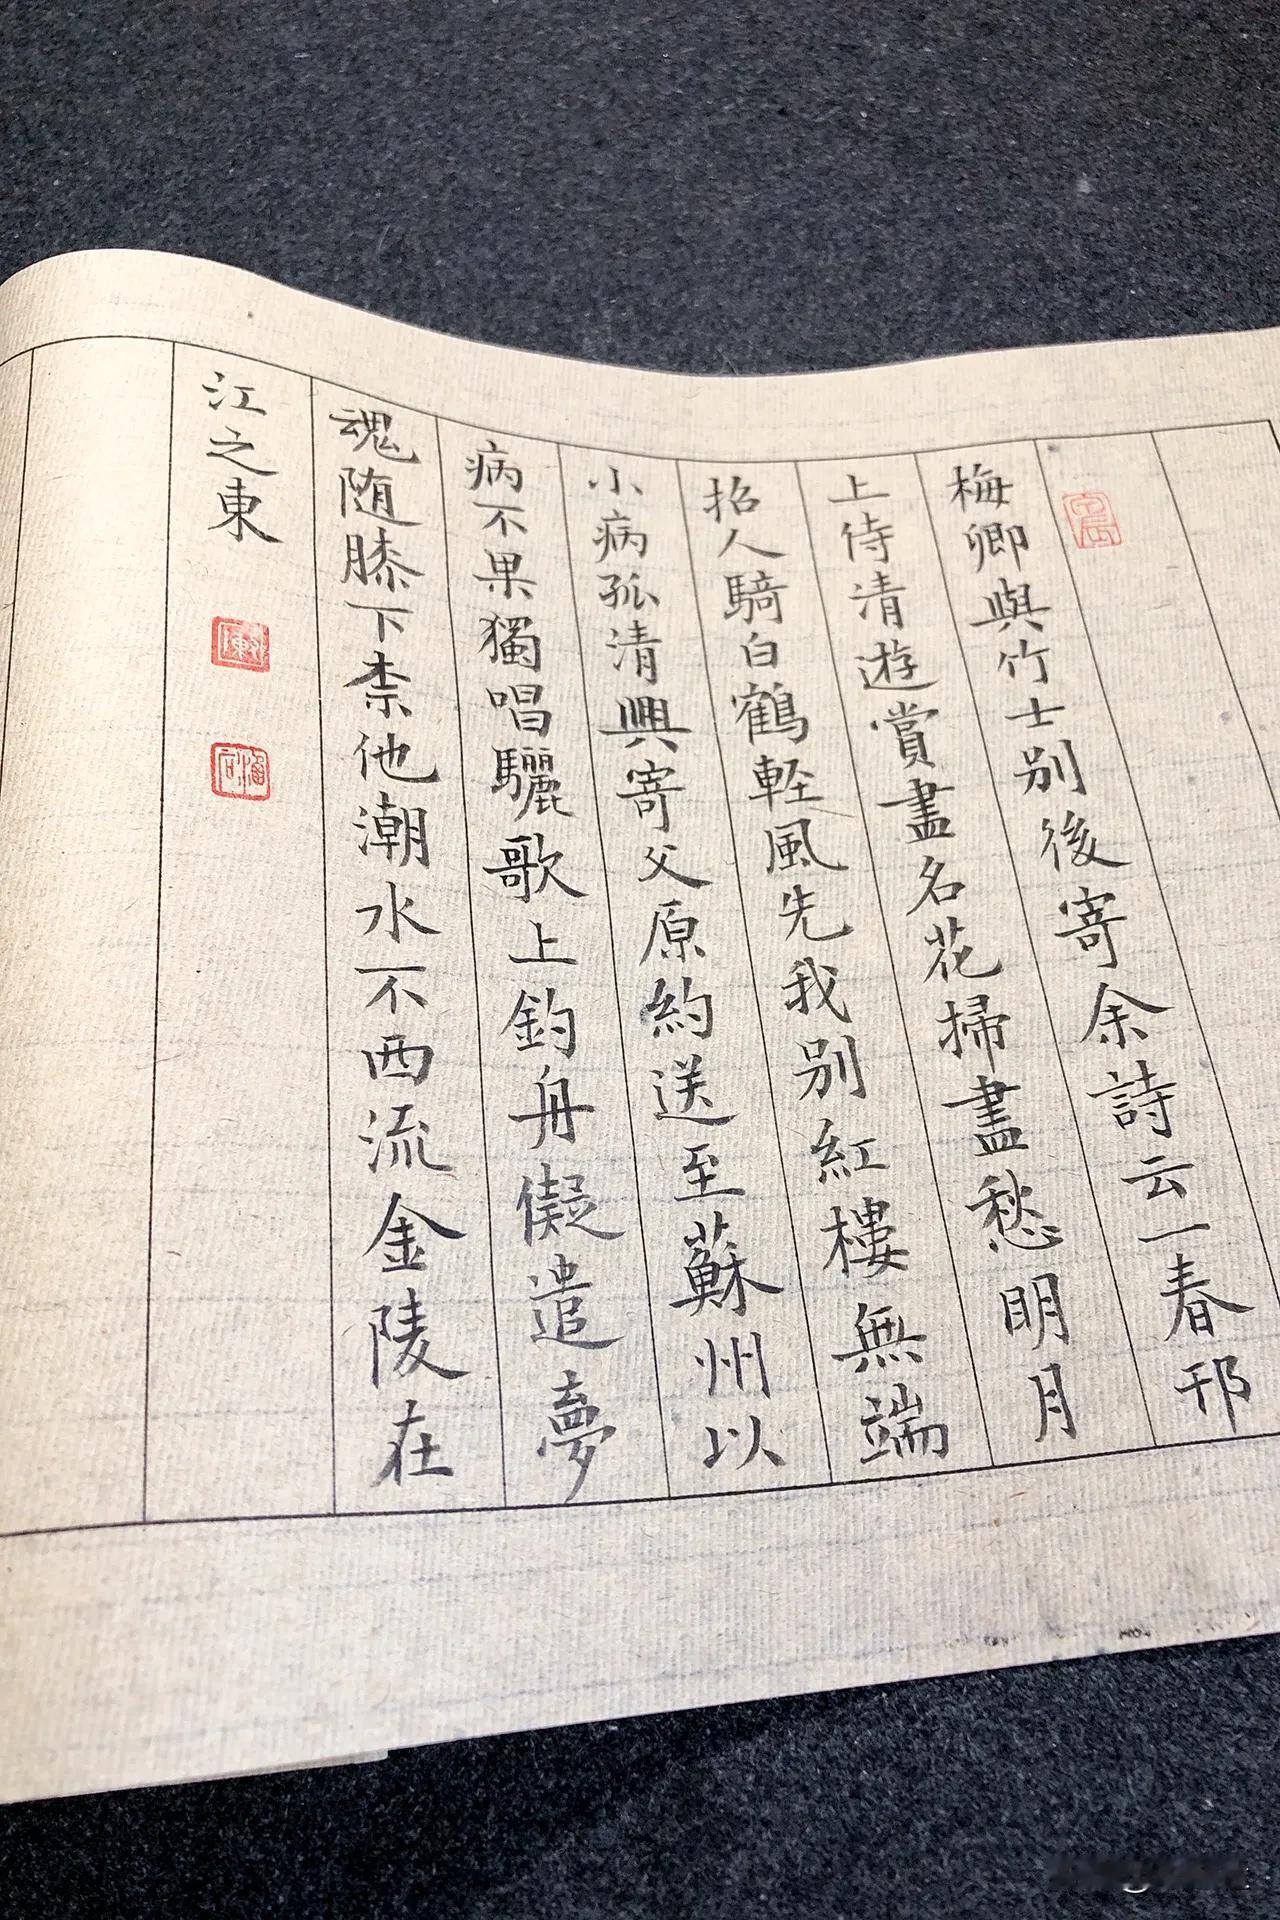 梅卿與竹士别後寄余詩云一春邗
上侍清遊賞盡名花掃盡愁明月
招人騎白鶴軽風先我别紅樓無端
小病孤清興寄父原約送至蘇州以
病不果獨唱驪歌上釣舟儗遣夢
魂随膝下柰他潮水不西流金陵在
江之東